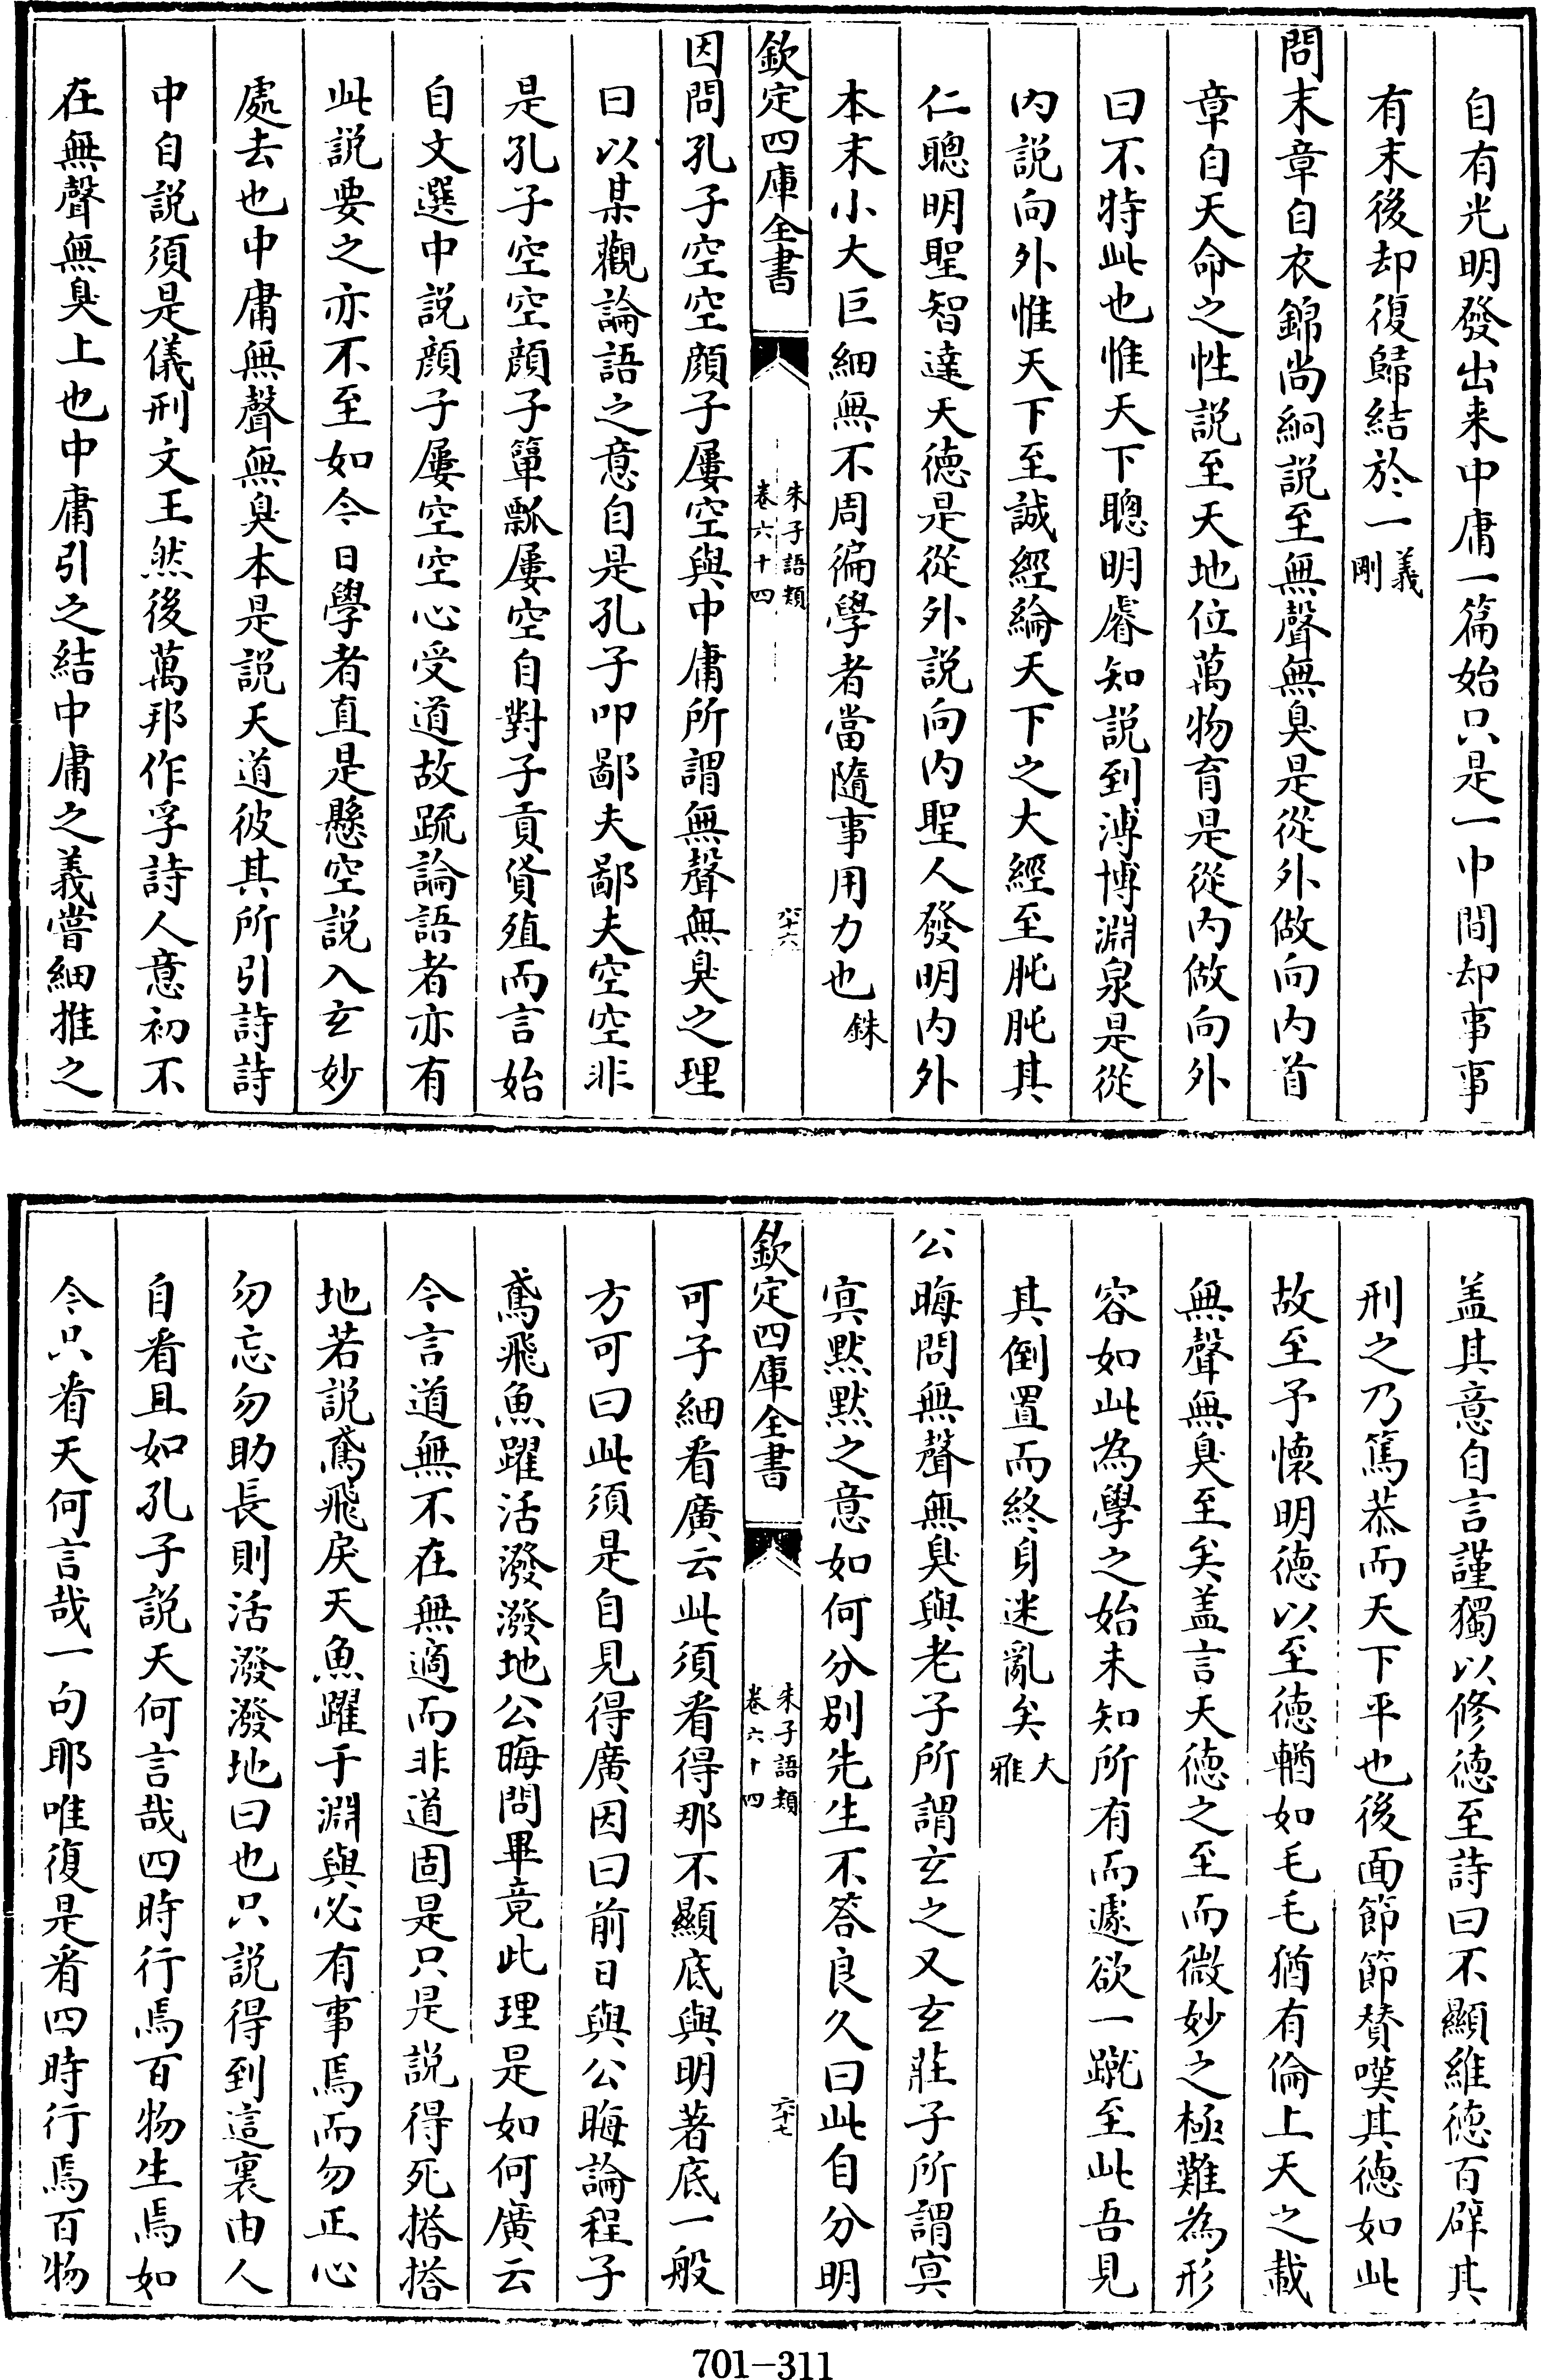 自有光明發出来中庸一篇始只是一中間却事事
有末後却復歸結於一義剛
問末章自衣錦尚絅説至無聲無臭是從外做向内首
章自天命之性説至天地位萬物育是從内做向外
曰不特此也惟天下聰明睿知説到溥博淵泉是從
内説向外惟天下至誠經綸天下之大經至肫肫其
仁聰明聖智達天徳是從外説向内聖人發明内外
本末小大巨細無不周徧學者當隨事用力也銖
欽定四庫全書
朱子語類
卷六十四
六十六
因問孔子空空顔子屢空與中庸所謂無聲無臭之理
曰以某觀論語之意自是孔子叩鄙夫鄙夫空空非
是孔子空空顔子簞瓢屢空自對子貢貨殖而言始
自文選中説顔子屢空空心受道故疏論語者亦有
此説要之亦不至如今日學者直是懸空説入玄妙
處去也中庸無聲無臭本是説天道彼其所引詩詩
中自説須是儀刑文王然後萬邦作孚詩人意初不
在無聲無臭上也中庸引之結中庸之義嘗細推之
盖其意自言謹獨以修徳至詩曰不顯維徳百辟其
刑之乃篤恭而天下平也後面節節賛嘆其徳如此
故至予懷明徳以至徳輶如毛毛猶有倫上天之載
無聲無臭至矣盖言天徳之至而微妙之極難為形
容如此為學之始未知所有而遽欲一蹴至此吾見
其倒置而終身迷亂矣大雅
公晦問無聲無臭與老子所謂玄之又玄莊子所謂㝠
㝠默默之意如何分别先生不答良久曰此自分明
欽定四庫全書
朱子語類
卷六十四
六十七
可子細看廣云此須看得那不顯底與明著底一般
方可曰此須是自見得廣因曰前日與公晦論程子
鳶飛魚躍活潑潑地公晦問畢竟此理是如何廣云
今言道無不在無適而非道固是只是説得死搭搭
地若説鳶飛戾天魚躍于淵與必有事焉而勿正心
勿忘勿助長則活潑潑地曰也只説得到這裏由人
自看且如孔子説天何言哉四時行焉百物生焉如
今只看天何言哉一句耶唯復是看四時行焉百物
701-311